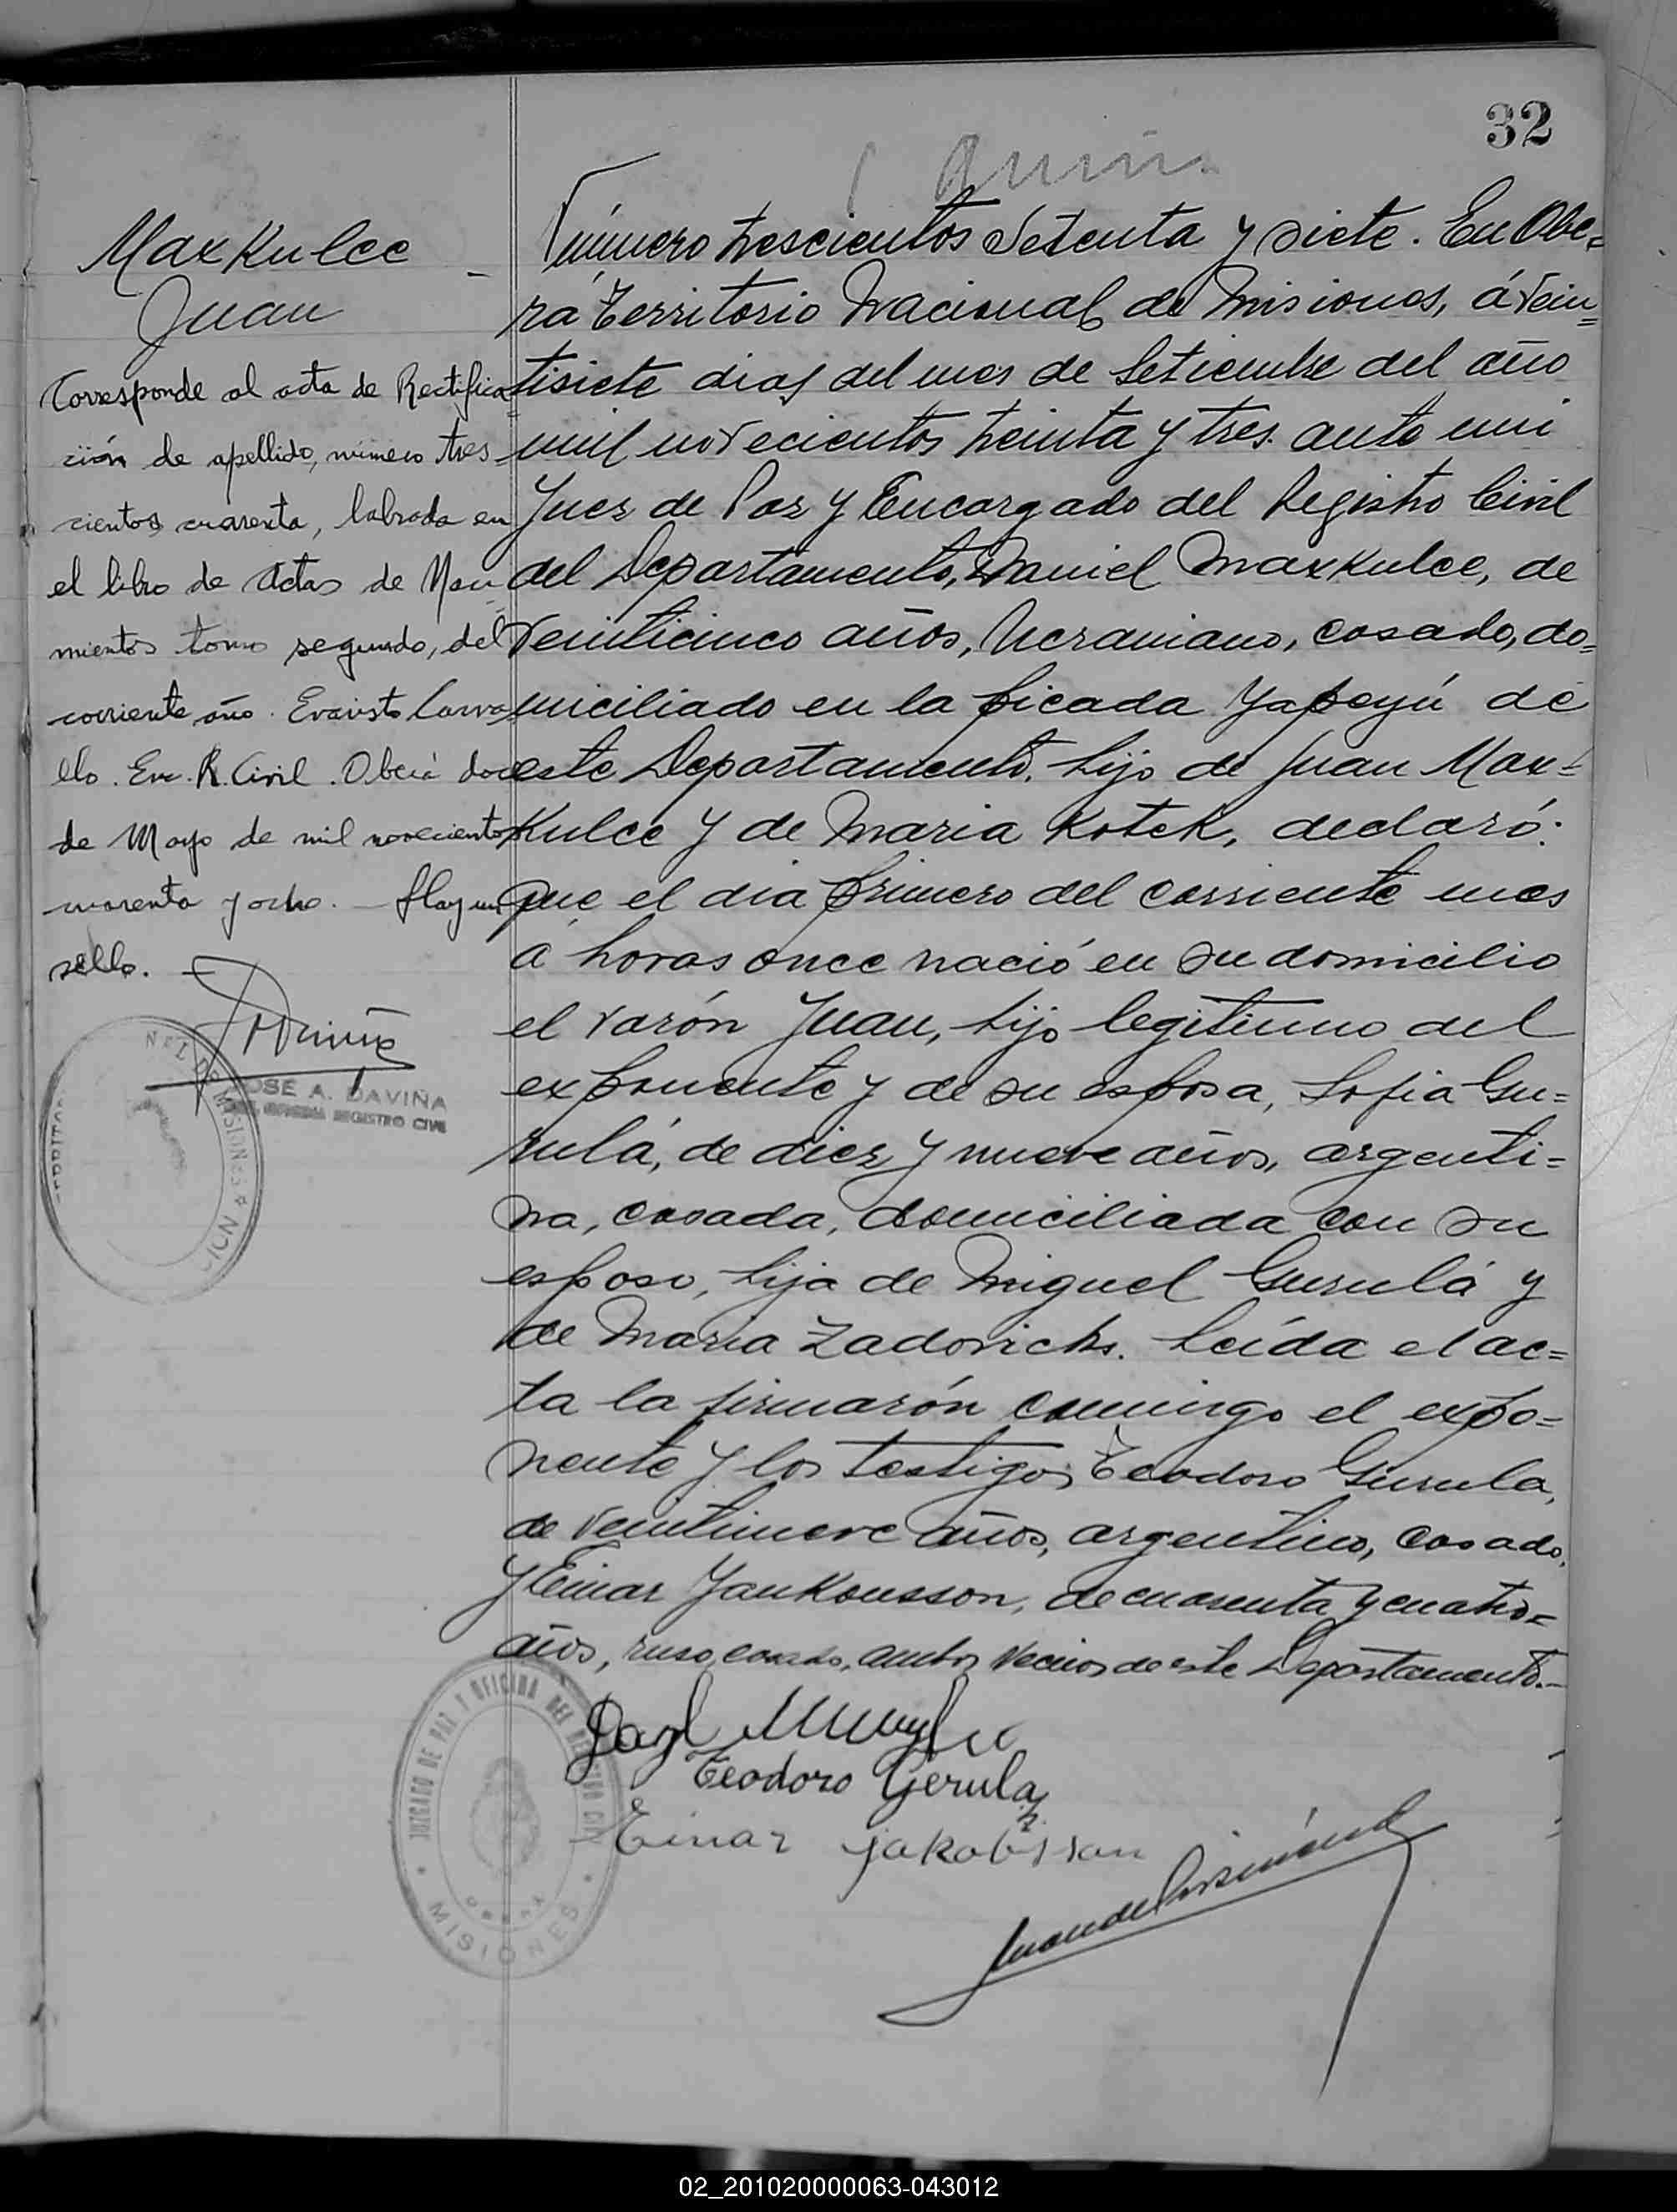 32
Maxkulce
Juan
Corresponde al acta de Rectifica
ción de apellido, número tres-
cientos cuarenta, labrada en
el libro de Actas de Naci-
mientos tomo segundo, del
corriente año. Evaristo Carva
llo. Enc. R. Civil. Oberá doce
de Mayo de mil novecientos
cuarenta y ocho. - Hay un
sello.
JOSE A. DAVIÑA
REGISTRO CIVIL
MISIONES
Número trescientos Setenta y siete. En Obe=
rá Territorio Nacional de Misiones, á vein=
tisiete dias del mes de Setiembre del año
mil novecientos treinta y tres. ante mi
Juez de Paz y Encargado del Registro Civil
del Departamento, Daniel Maxkulce, de
veinticinco años, Ucraniano, casado, do=
miciliado en la picada Yapeyú de
este Departamento, hijo de Juan Max=
Kulce y de Maria Kotek, declaró:
que el dia primero del corriente mes
á horas once nació en su domicilio
el varón Juan, hijo legitimo del
exponente y de su esposa, Sofia Gu=
rulá, de diez y nueve años, argenti=
na, casada, domiciliada con su
esposo, hija de Miguel Gurulá y
de Maria Zadovichs. Leída el ac=
ta la firmarón conmigo el expo=
nente y los testigos Teodoro Gurula,
de veintinueve años, argentino, casado,
y Einar Yankousson, de cuarenta y cuatro=
años, ruso, casado, ambos vecinos de este Departamento.-
Teodoro Gerula
Einar Jakobsson
JUZGADO DE PAZ Y OFICINA DEL REGISTRO CIVIL
OBERA
MISIONES
02_201020000063-043012